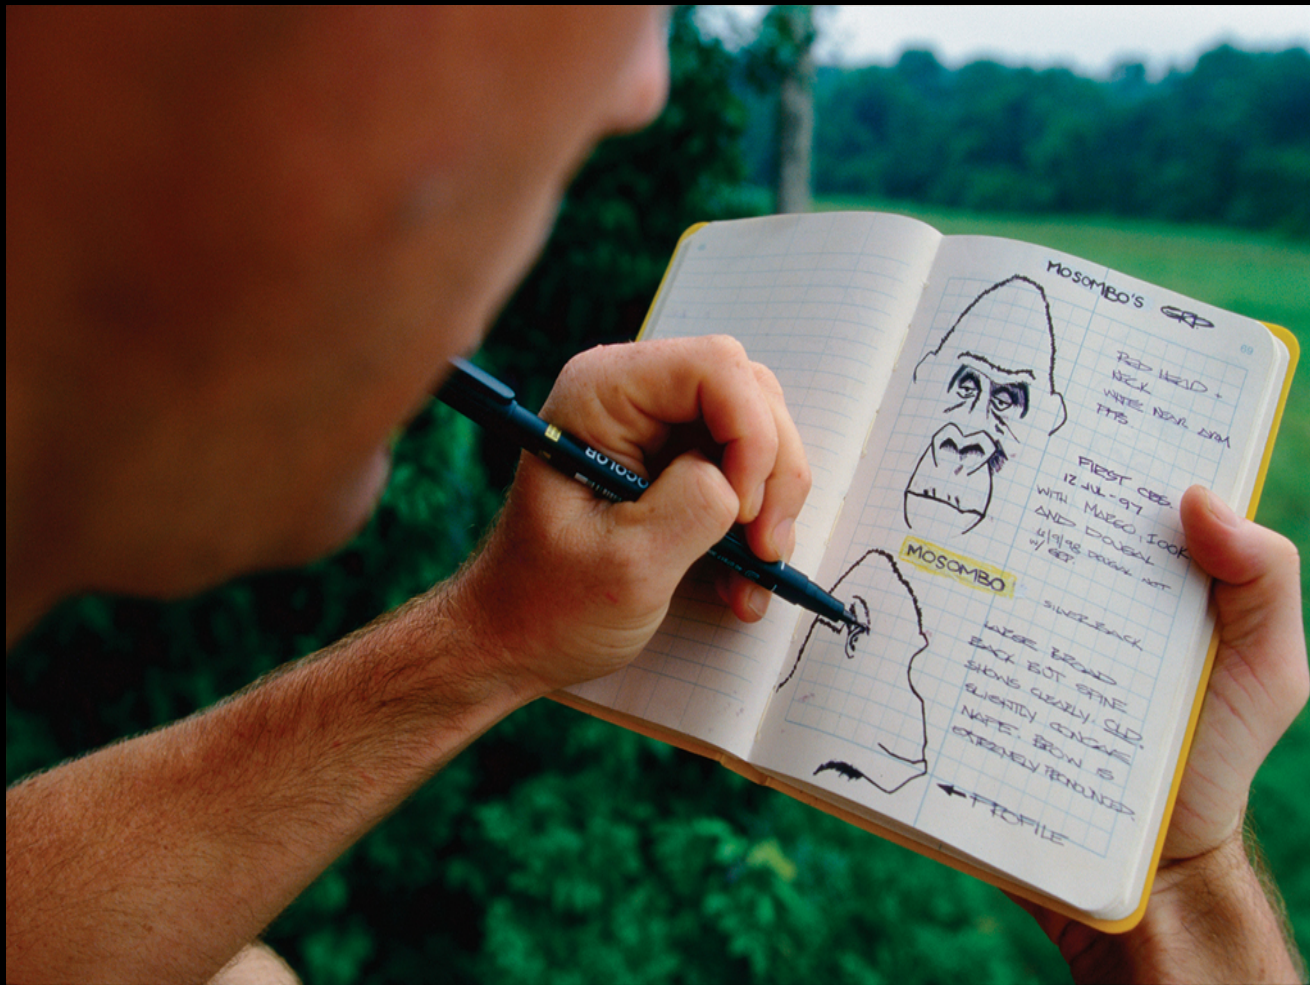 MOSOMBO'S GRP
09
RED HEAD +
NECK
WHITE NEAR ARM
PITS
FIRST OBS.
12 JUL-97
WITH MARGO, IOOK
AND DOUGAL
4/9/98 DOUGAL NOT
W/ GRP.
MOSOMBO
SILVERBACK
LARGE BROAD
BACK BUT SPINE
SHOWS CLEARLY.
SLIGHTLY CONCAVE
NAPE. BROW IS
EXTREMELY PRONOUNCED.
← PROFILE
OCOLOR